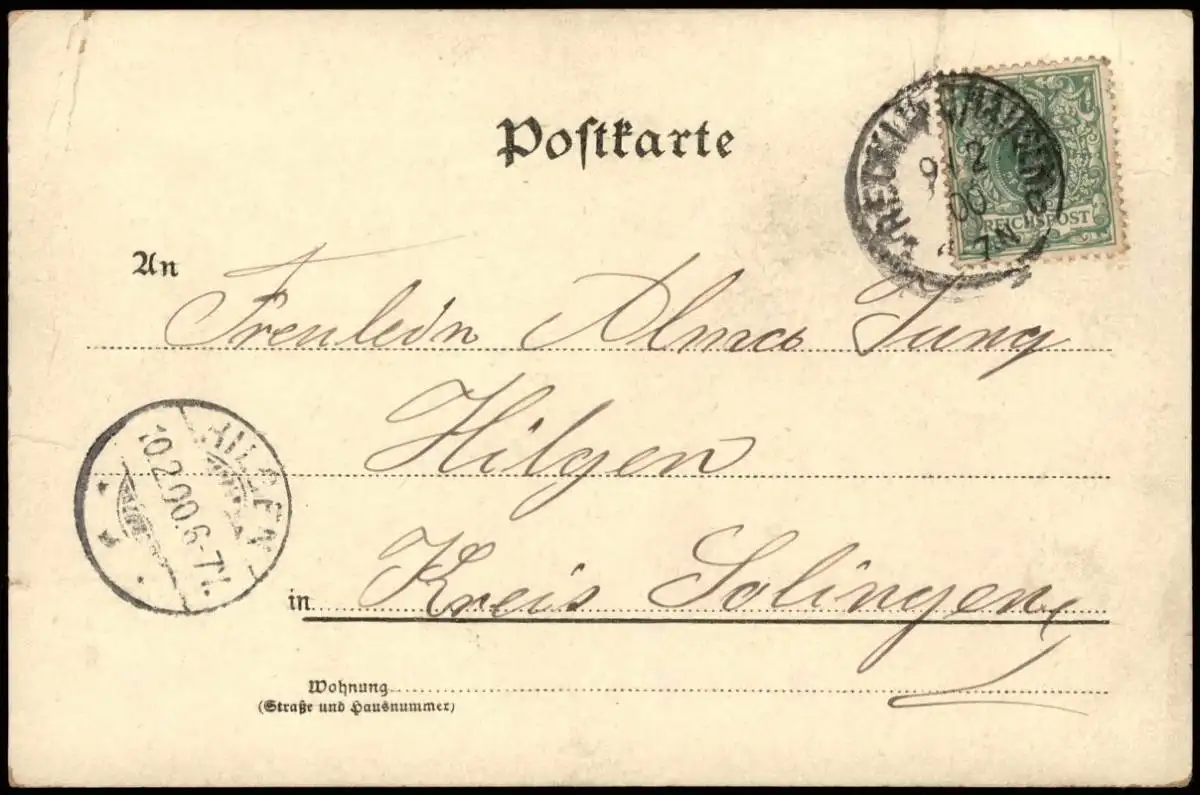 Postkarte
RECKLINGHAUSEN
9 2
00
7-N
REICHSPOST
An
Freulein Alma Jung
Hilgen
HILGEN
10.2.00.6-7N.
in Kreis Solingen
Wohnung
(Straße und Hausnummer)